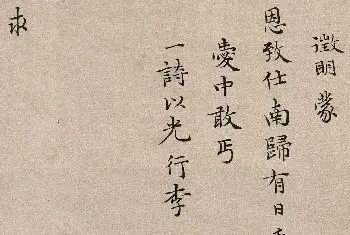 徵明蒙
恩致仕南歸有日
愛中敢丐
一詩以光行李
求